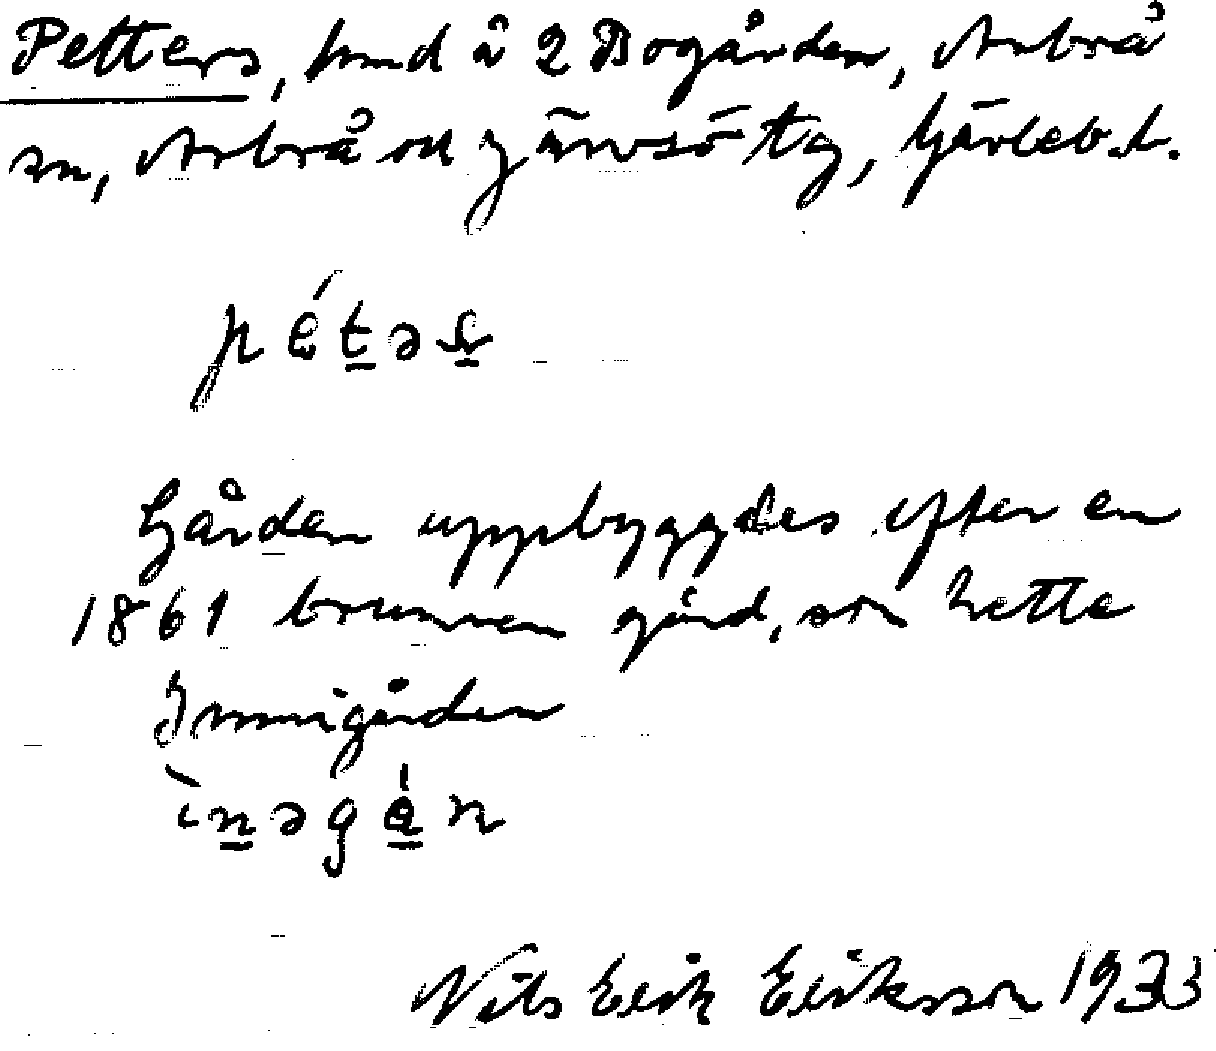 Petters, hmd å 2 Bogården, Arbrå
sn, Arbrå och Järvsö tg, Gävleb. l.
pétəs
Gården uppbyggdes efter en
1861 brunnen gård, som hette
Innigården
ìnəgán
Nils Erik Eriksson 1933